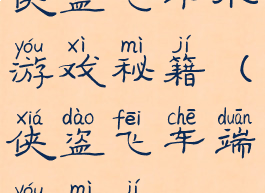 侠盗飞车末
yóu xì mì jí
游戏秘籍（
xiá dào fēi chē duān
侠盗飞车端
yóu mì jí